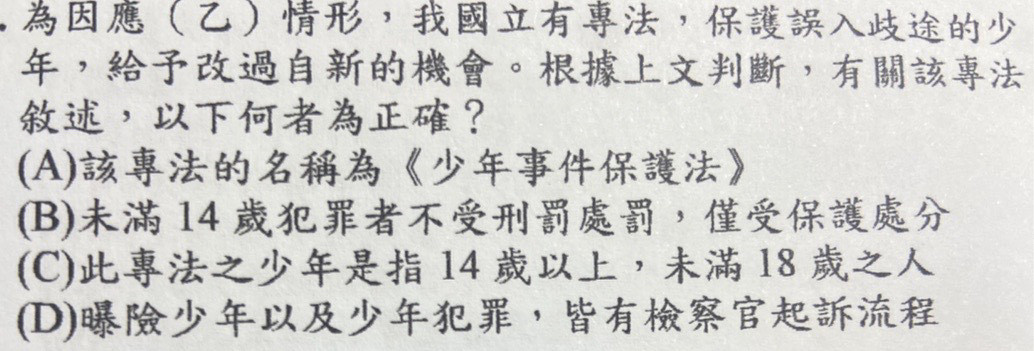 .為因應（乙）情形，我國立有專法，保護誤入歧途的少
年，給予改過自新的機會。根據上文判斷，有關該專法
敘述，以下何者為正確？
(A)該專法的名稱為《少年事件保護法》
(B)未滿 14 歲犯罪者不受刑罰處罰，僅受保護處分
(C)此專法之少年是指 14 歲以上，未滿 18 歲之人
(D)曝險少年以及少年犯罪，皆有檢察官起訴流程